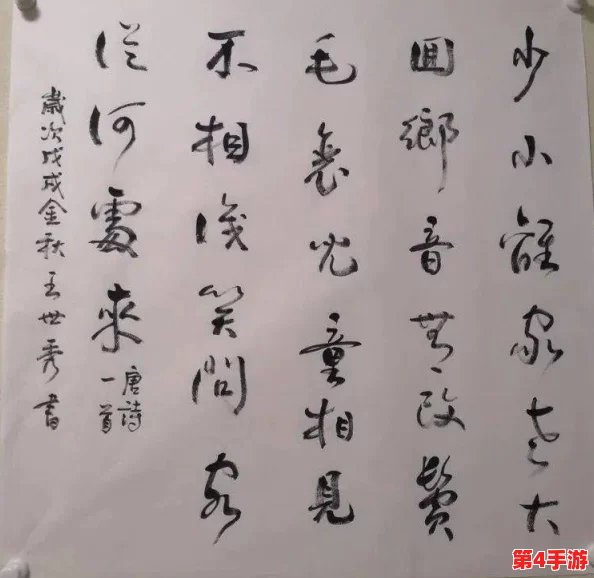 少小離家老大
回鄉音無改鬢
毛衰兒童相見
不相識笑問客
從何處來
唐詩
一首
歲次戊戌金秋王世秀書
第4手游